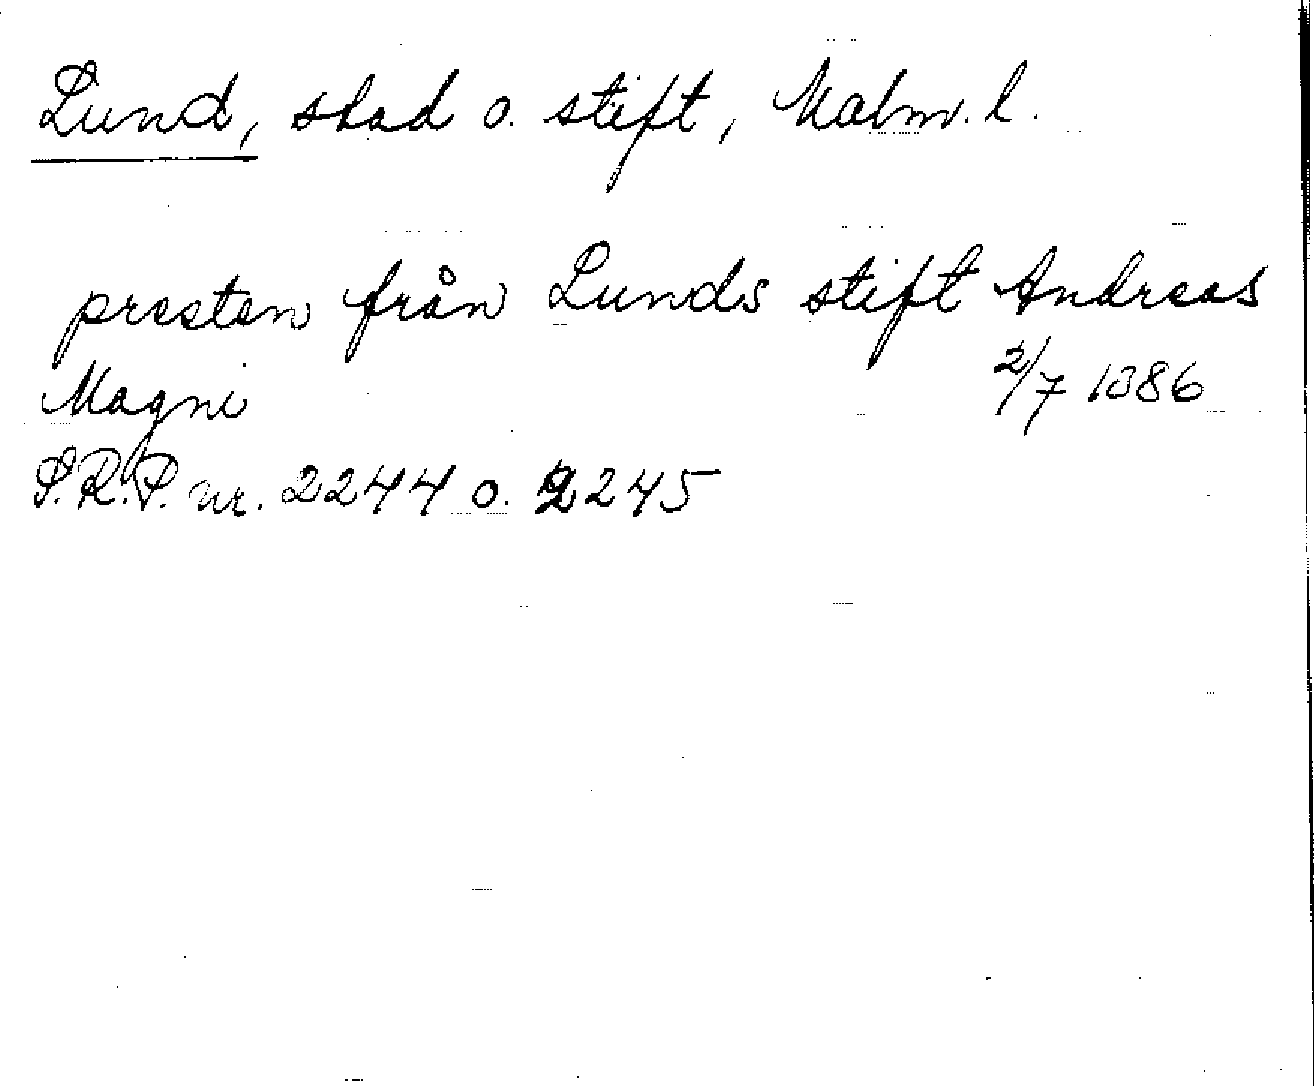 Lund, stad o. stift, Malm. l.
presten från Lunds stift Andreas
Magni 2/7 1386
S.R.P. nr. 2244 o. 2245